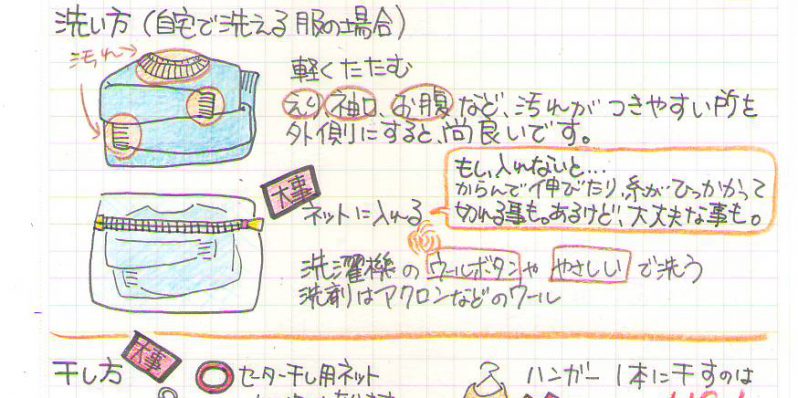 洗い方(自宅で洗える服の場合)
汚れ
軽くたたむ
えり 袖口、お腹など、汚れがつきやすい所を
外側にすると、尚良いです。
大事
ネットに入れる
もし、入れないと…
からんで伸びたり、糸がひっかかって
切れる事も。あるけど、大丈夫な事も。
洗濯機のウールボタンや やさしい で洗う
洗剤はアクロンなどのウール
干し方
大事
セーター干し用ネット
ハンガー1本に干すのは